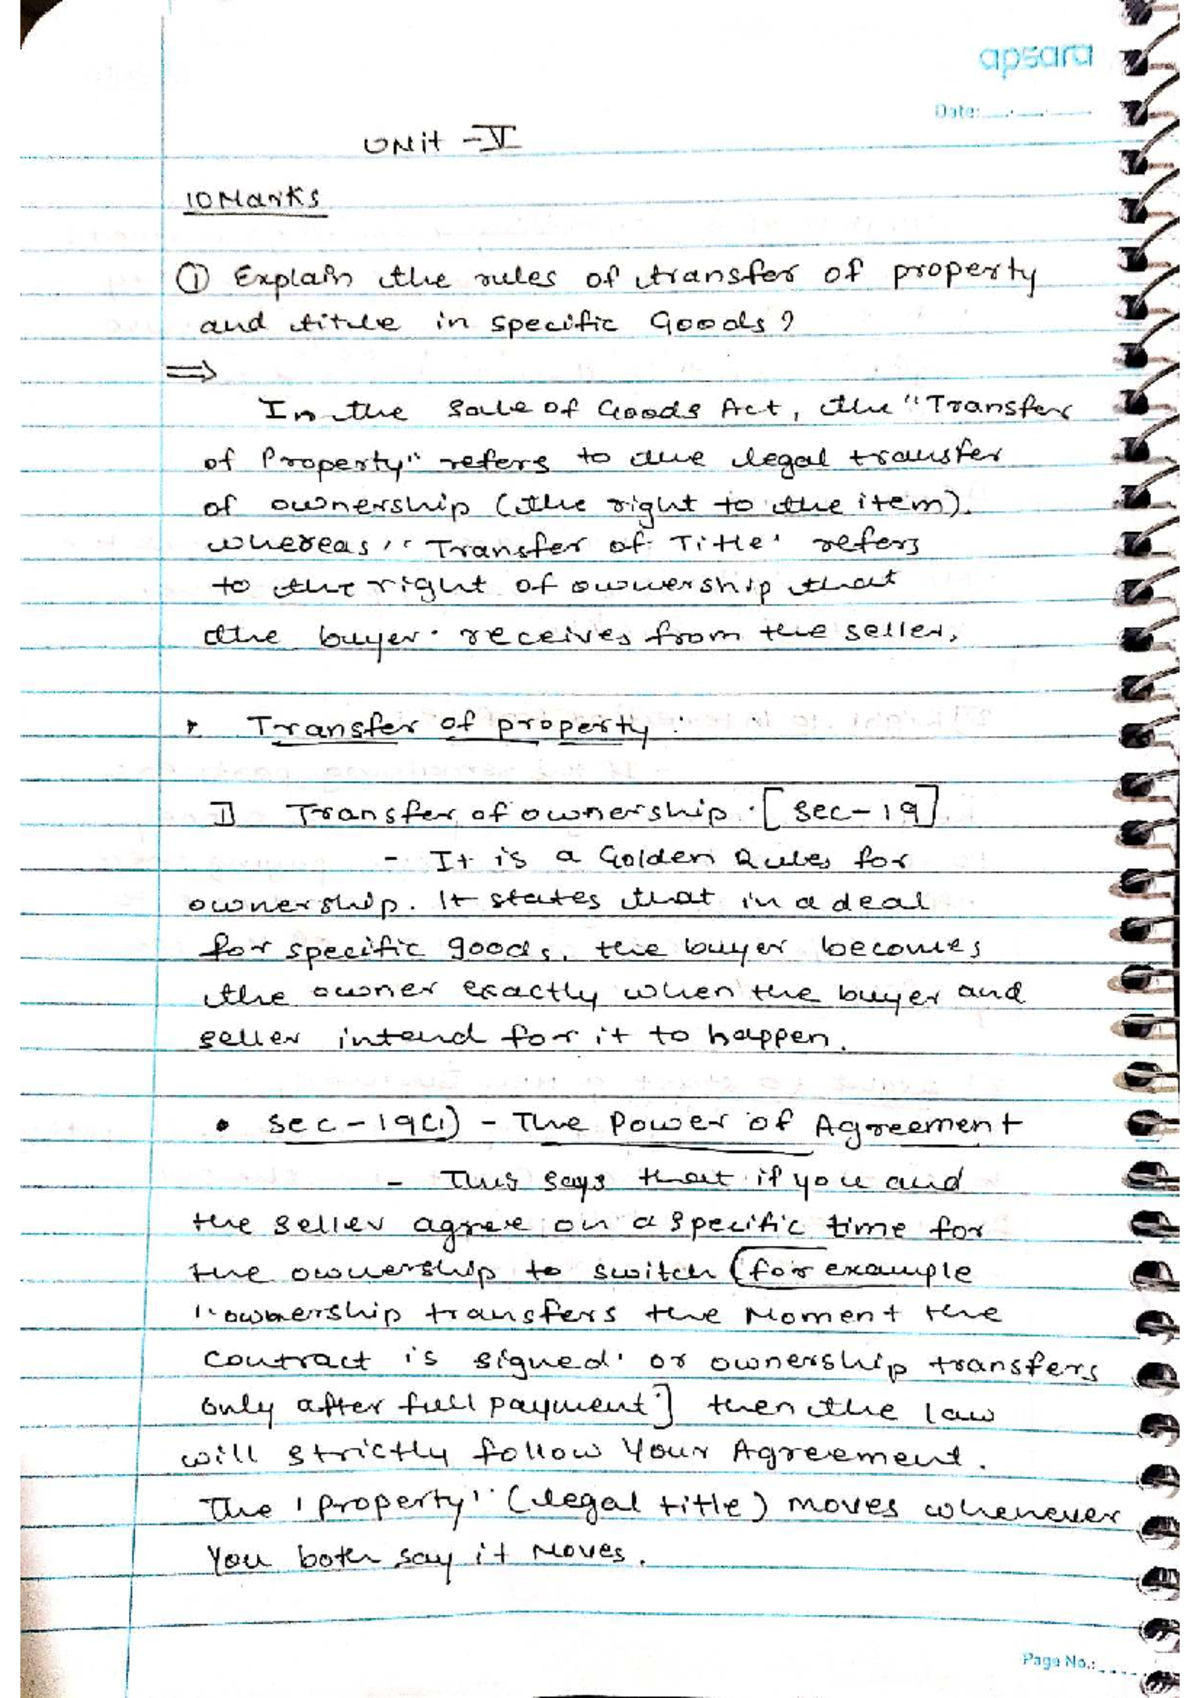 apsara
Date:
Unit - V
10 Marks
① Explain the rules of transfer of property
and title in specific Goods?
⇒
In the Sale of Goods Act, the "Transfer
of Property" refers to the legal transfer
of ownership (the right to the item).
whereas, "Transfer of Title' refers
to the right of ownership that
the buyer receives from the seller.
Transfer of property:
I] Transfer of ownership [sec-19]
- It is a Golden Rules for
ownership. It states that in a deal
for specific goods, the buyer becomes
the owner exactly when the buyer and
seller intend for it to happen.
• Sec-19(1) - The Power of Agreement
- This says that if you and
the seller agree on a specific time for
the ownership to switch (for example
"ownership transfers the Moment the
contract is signed' or ownership transfers
only after full payment] then the law
will strictly follow Your Agreement.
The 'property' (legal title) moves whenever
You both say it Moves.
Page No.: